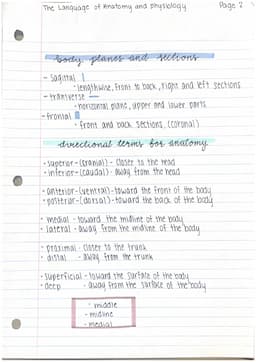 The Language of Anatomy and physiology Page 2
body planes and sections
- Sagittal |
- lengthwise, front to back, right and left sections
- tranverse —
- horizontal plane, upper and lower parts
- frontal
- front and back sections, (coronal)
directional terms for anatomy
• superior - (cranial) - closer to the head
• inferior - (caudal) - away from the head
• anterior - (ventral) - toward the front of the body
• posterior - (dorsal) - toward the back of the body
• medial - toward the midline of the body
• lateral - away from the midline of the body
• proximal - closer to the trunk
• distal - away from the trunk
• superficial - toward the surface of the body
• deep - away from the surface of the body
- middle
- midline
- medial